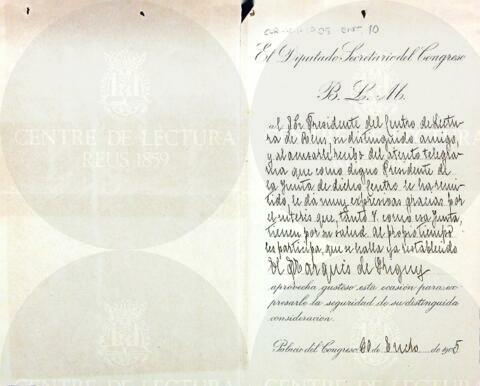 El Diputado Secretario del Congreso
B. L. M.
al Sor Presidente del Centro de Lectu
ra de Reus, su distinguido amigo,
y al acusarle recibo del atento telegra
ma que como digno Presidente de
la Junta de dicho Centro le ha remi
tido, le da muy expresivas gracias por
el interés que, tanto V. como esa Junta,
tienen por su salud. Al propio tiempo
les participa, que se halla ya restablecido
El Marqués de
aprovecha gustoso esta ocasión para ex
presarle la seguridad de su distinguida
consideración.
Palacio del Congreso de Enero de 1905
CENTRE DE LECTURA
REUS 1859
CENTRE DE LECTURA
REUS 1859